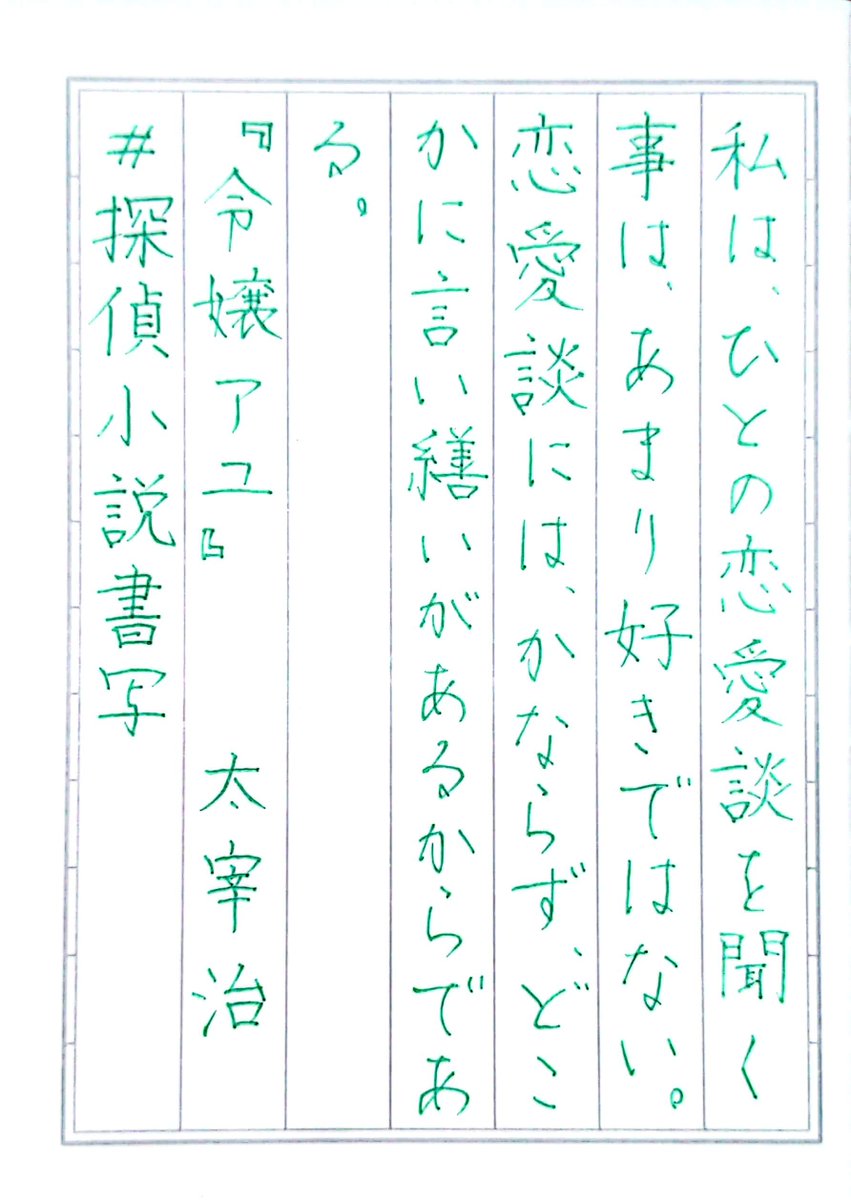 私は、ひとの恋愛談を聞く
事は、あまり好きではない。
恋愛談には、かならず、どこ
かに言い繕いがあるからであ
る。
『令嬢アユ』 太宰治
#探偵小説書写